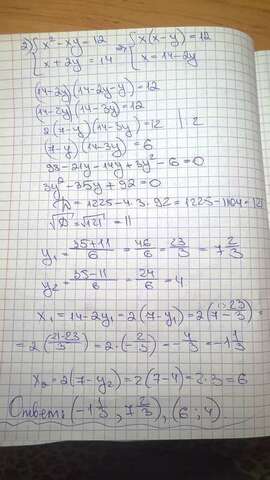 2) { x² - xy = 12 { x(x-y) = 12
{ x + 2y = 14 { x = 14-2y
(14-2y)(14-2y-y) = 12
(14-2y)(14-3y) = 12
2(7-y)(14-3y) = 12 | 2
(7-y)(14-3y) = 6
98-21y-14y+3y²-6=0
3y²-35y+92=0
D = 1225-4·3·92 = 1225-1104 = 121
√D = √121 = 11
y₁ = 35+11/6 = 46/6 = 23/3 = 7 2/3
y₂ = 35-11/6 = 24/6 = 4
x₁ = 14-2y₁ = 2(7-y₁) = 2(7-23/3) =
= 2(21-23/3) = 2·(-2/3) = -4/3 = -1 1/3
x₂ = 2(7-y₂) = 2(7-4) = 2·3 = 6
Ответ: (-1 1/3 ; 7 2/3), (6 ; 4)